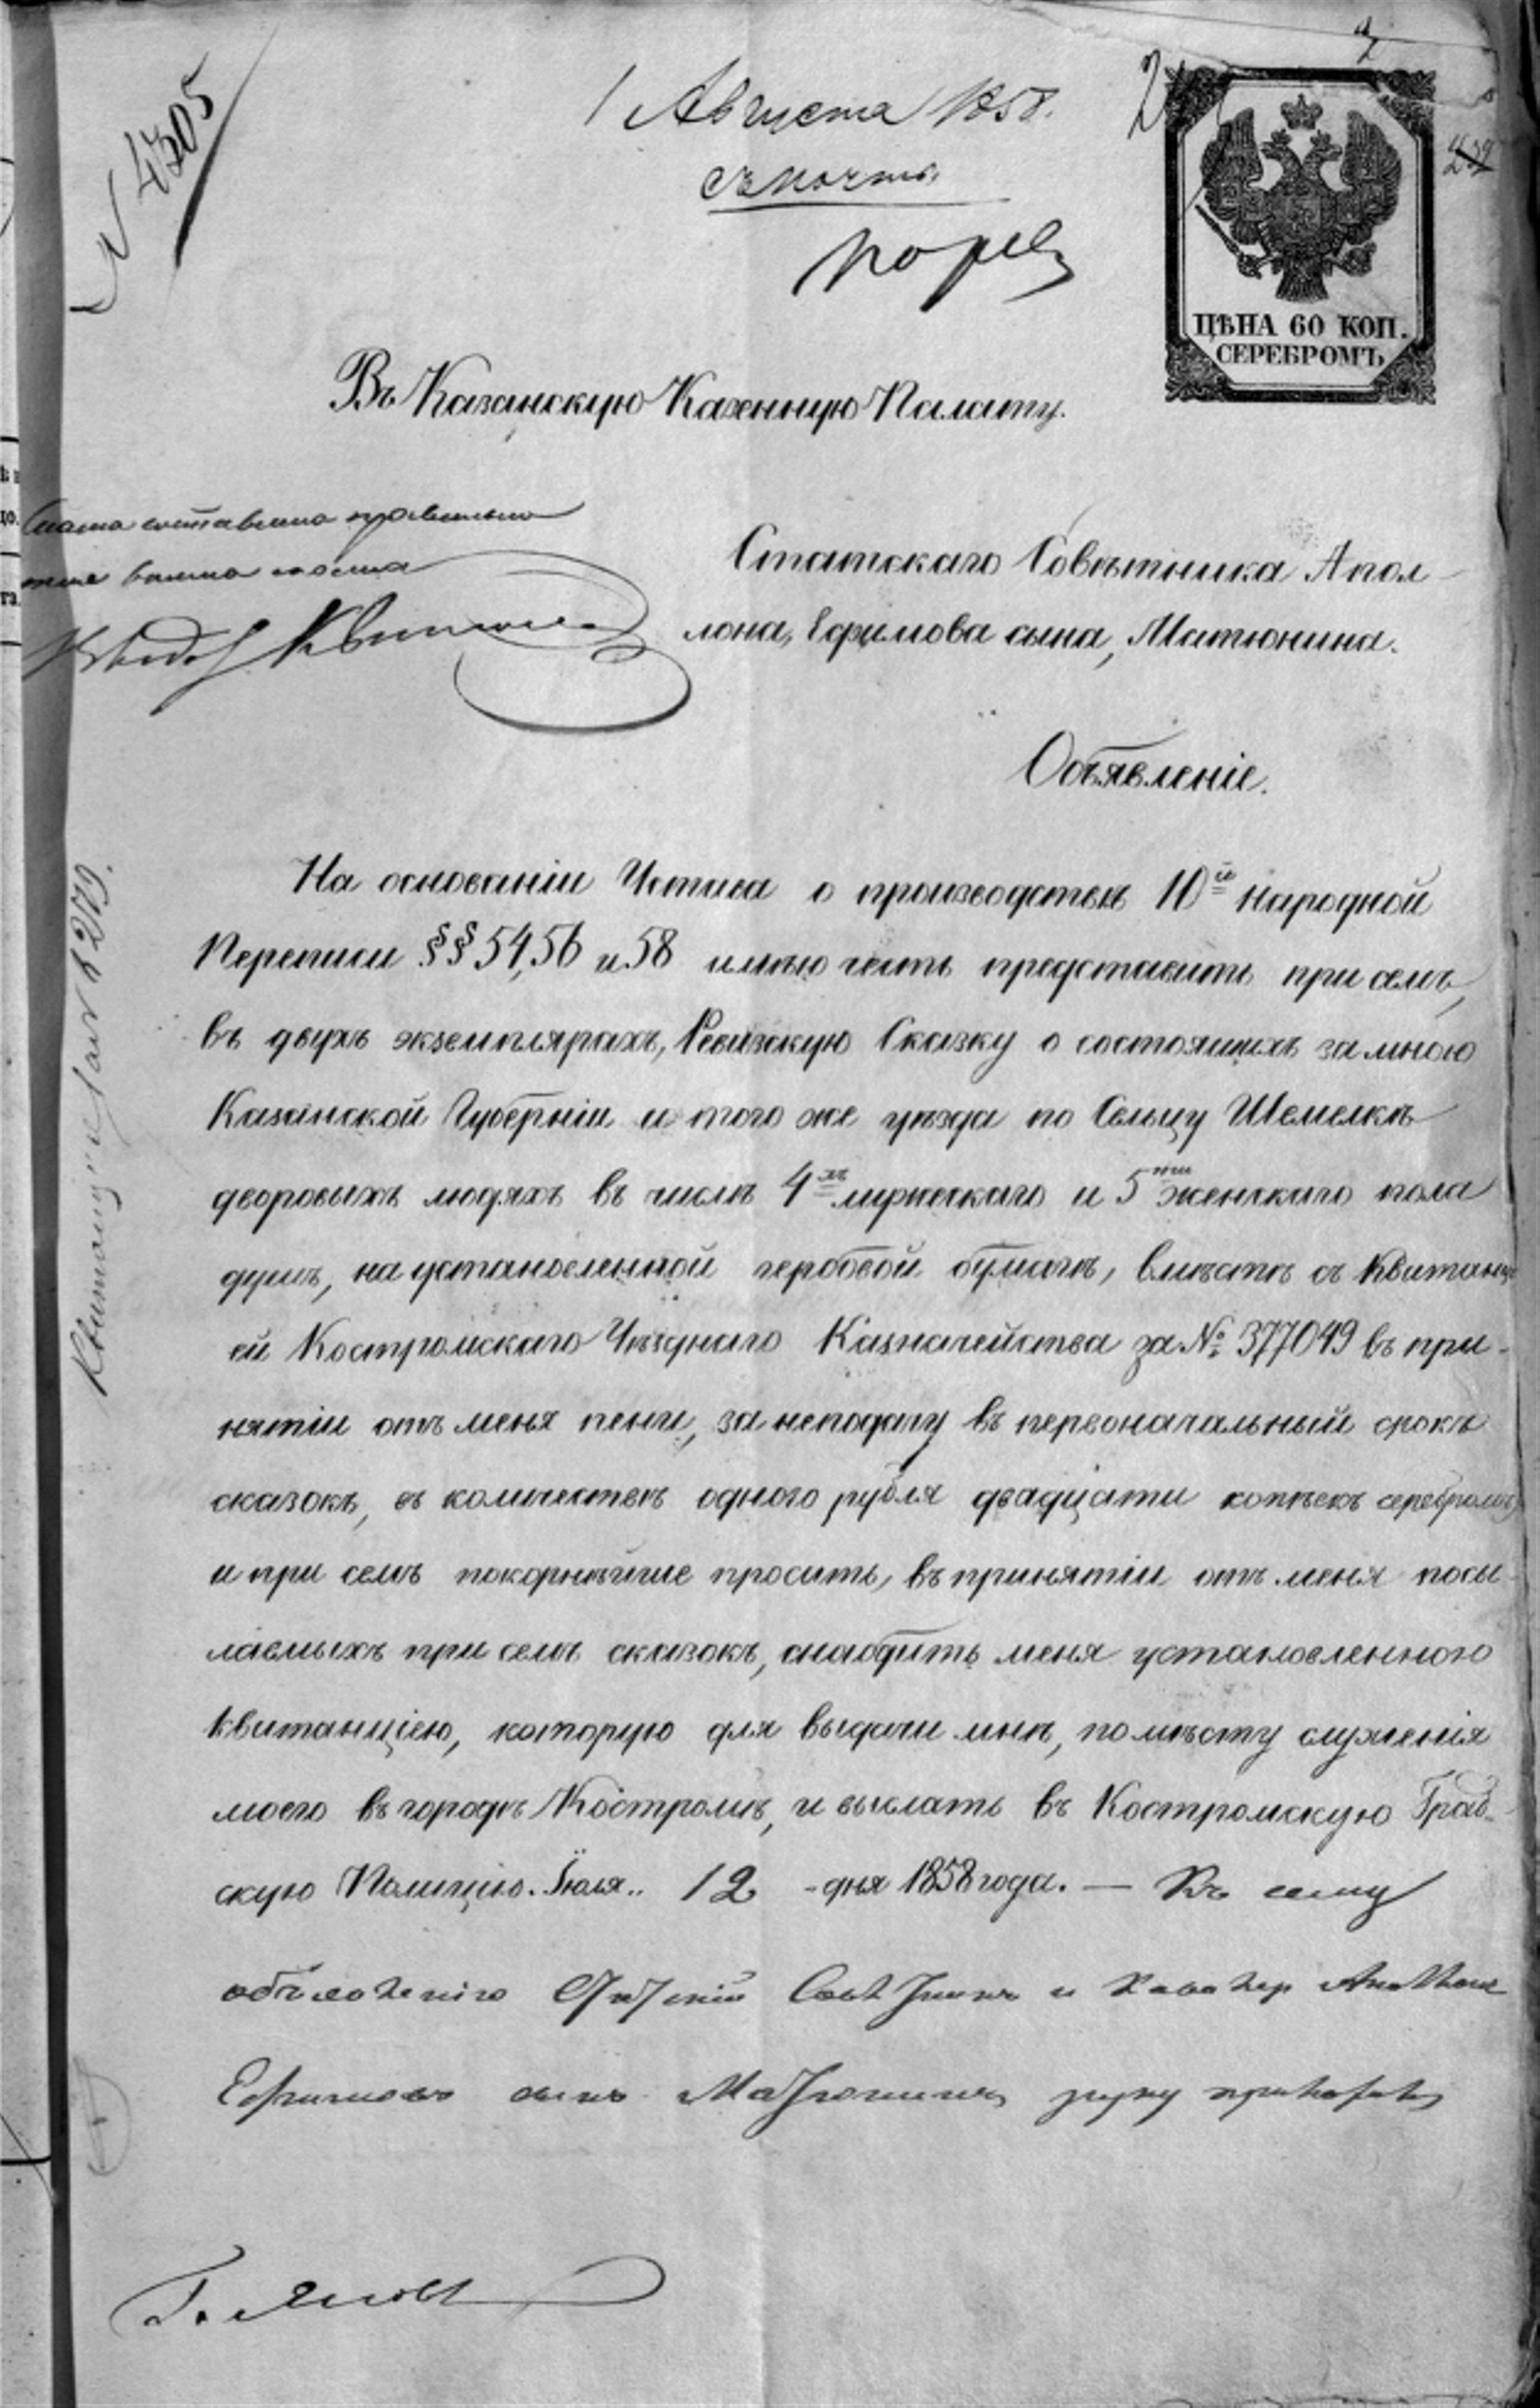 N 4305
1 Августа 1858.
съ почты
ЦѢНА 60 КОП.
СЕРЕБРОМЪ
Въ Казанскую Казенную Палату.
составлена правильно
Статскаго Совѣтника Апол-
лона, Ефимова сына, Матюнина.
Объявленіе.
На основаніи Устава о производствѣ 10й Народной
Переписи §§ 54, 56 и 58 имѣю честь представить при семъ,
въ двухъ экземплярахъ, Ревизскую Сказку о состоящихъ за мною
Казанской Губерніи и того же уѣзда по Сельцу Шемелкѣ
дворовыхъ людяхъ въ числѣ 4хъ мужескаго и 5ти женскаго пола
душъ, на установленной гербовой бумагѣ, вмѣстѣ съ Квитанці
ей Костромскаго Уѣзднаго Казначейства за № 377049 въ при-
нятіи отъ меня пени, за неподачу въ первоначальный срокъ
сказокъ, въ количествѣ одного рубля двадцати копѣекъ серебромъ,
и при семъ покорнѣйше просить, въ принятіи отъ меня посы-
лаемыхъ при семъ сказокъ, снабдить меня установленною
Квитанціею, которую для выдачи мнѣ, по мѣсту служенія
моего въ городѣ Костромѣ, и выслать въ Костромскую Град-
скую Полицію. Іюля 12 - дня 1858 года. — Къ сему
объявленію Статскій Совѣтникъ и Кавалер Аполлонъ
Ефимовъ сынъ Матюнинъ руку приложилъ